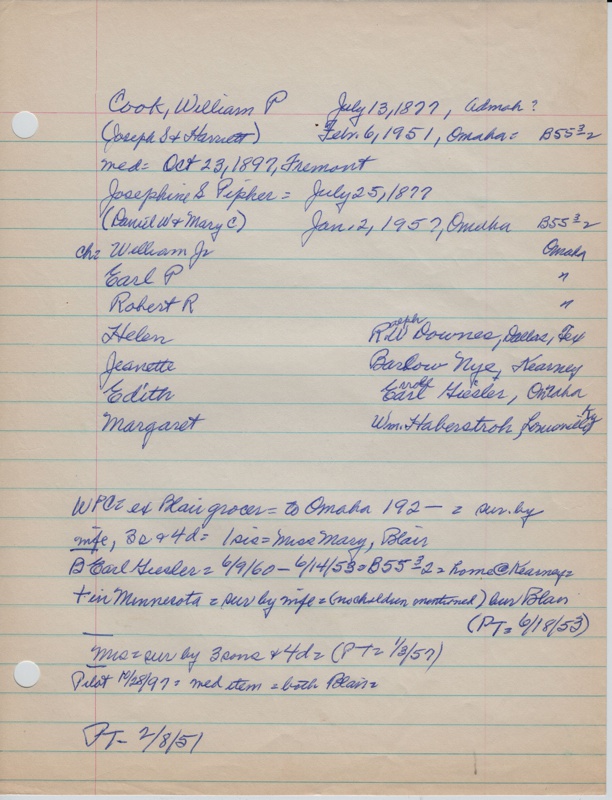 Cook, William P July 13, 1877, Admah?
(Joseph S & Harriett) Febr. 6, 1951, Omaha = B55 3-2
med = Oct 23, 1897, Fremont
Josephine S Pipher = July 25, 1877
(Daniel W & Mary C) Jan. 2, 1957, Omaha B55 3-2
ch = William Jr Omaha
Earl P "
Robert R "
Helen Ralph W Downes, Dallas, Tex
Jeanette Barlow Nye, Kearney
Edith Earl Giesler, Omaha
Margaret Wm. Haberstroh, Louisville, Ky
WPC = ex Blair grocer = to Omaha 192— = sur. by
wife, 3s & 4d = 1 sis = Miss Mary, Blair
B Earl Giesler = 6/9/60 – 6/14/53 = B55 3-2 = home @ Kearney =
+ in Minnesota = sur by wife = (no children mentioned) bur Blair
(PT = 6/18/53)
Mrs = sur by 3 sons & 4d = (PT = 1/3/57)
Pilot 10/28/97 = med item = both Blair =
PT – 2/8/51